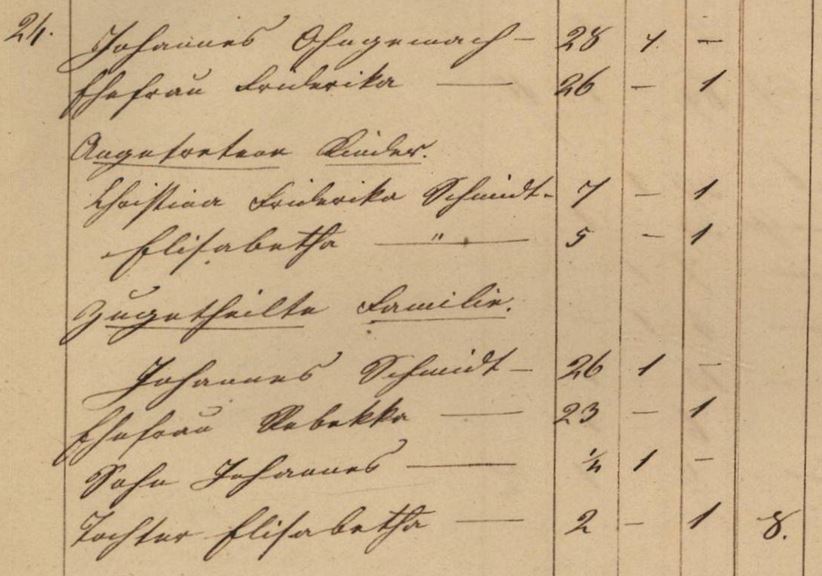 24. Johannes Ohngemach – 28 1. –
Ehefrau Friederika — 26 – 1
Angetretene Kinder.
Christina Friederika Schmidt – 7 – 1
Elisabetha — " — 5 – 1
Zugetheilte Familie.
Johannes Schmidt – 26 1 –
Ehefrau Rebekka — 23 – 1
Sohn Johannes — ½ 1 –
Tochter Elisabetha — 2 – 1 8.